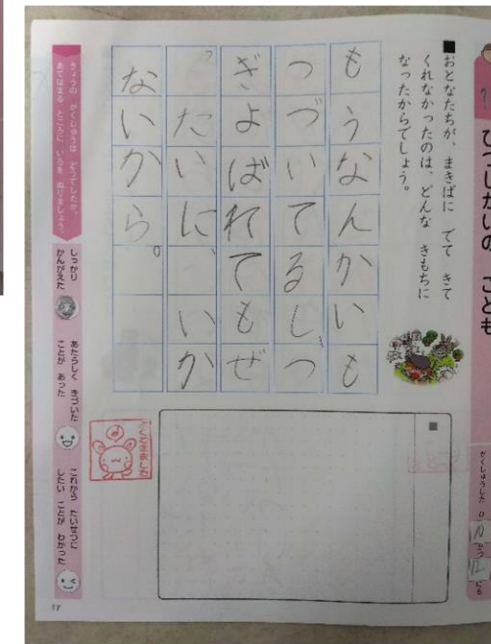 ひつじかいの こども
■おとなたちが、まきばに でて きて
くれなかったのは、どんな きもちに
なったからでしょう。
もうなんかいも
つづいてるし、つ
ぎよばれてもぜ
ったいに、いか
ないから。
■
きょうの がくしゅうは どうでしたか。
あてはまる ところに いろを ぬりましょう。
しっかり
かんがえた
あたらしく きづいた
ことが あった
これから たいせつに
したい ことが わかった
がくしゅうした 日
10
がつ
12
にち
17